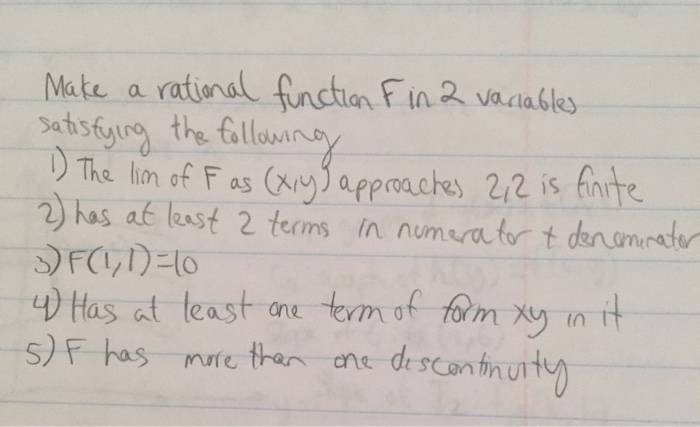 Make a rational function F in 2 variables
satisfying the following
1) The lim of F as (x,y) approaches 2,2 is finite
2) has at least 2 terms in numerator + denominator
3) F(1,1)=10
4) Has at least one term of form xy in it
5) F has more than one discontinuity